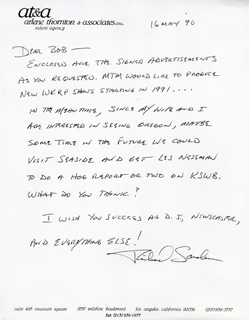 at&a
arlene thornton & associates, inc.
talent agency
16 MAY '90
DEAR BOB—
ENCLOSED ARE THE SIGNED ADVERTISEMENTS
AS YOU REQUESTED. MTM WOULD LIKE TO PRODUCE
NEW WKRP SHOWS STARTING IN 1991....
IN THE MEANTIME, SINCE MY WIFE AND I
ARE INTERESTED IN SEEING OREGON, MAYBE
SOME TIME IN THE FUTURE WE COULD
VISIT SEASIDE AND GET LES NESSMAN
TO DO A HOG REPORT OR TWO ON KSWB.
WHAT DO YOU THINK?
I WISH YOU SUCCESS AS D.J., NEWSCASTER,
AND EVERYTHING ELSE!
suite 485 museum square 5757 wilshire boulevard los angeles, california 90036